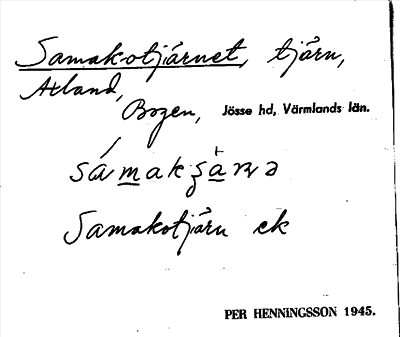 Samakotjärnet, tjärn,
Axland,
Bogen, Jösse hd, Värmlands län.
Samakotjärn ek
PER HENNINGSSON 1945.